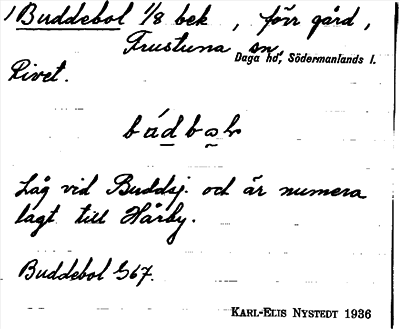 1) Buddebol 1/8 bek, förr gård,
Frustuna sn,
Daga hd, Södermanlands l.
Rivet.
Låg vid Buddsj. och är numera
lagt till Hårby.
Buddebol G67.
KARL-ELIS NYSTEDT 1936